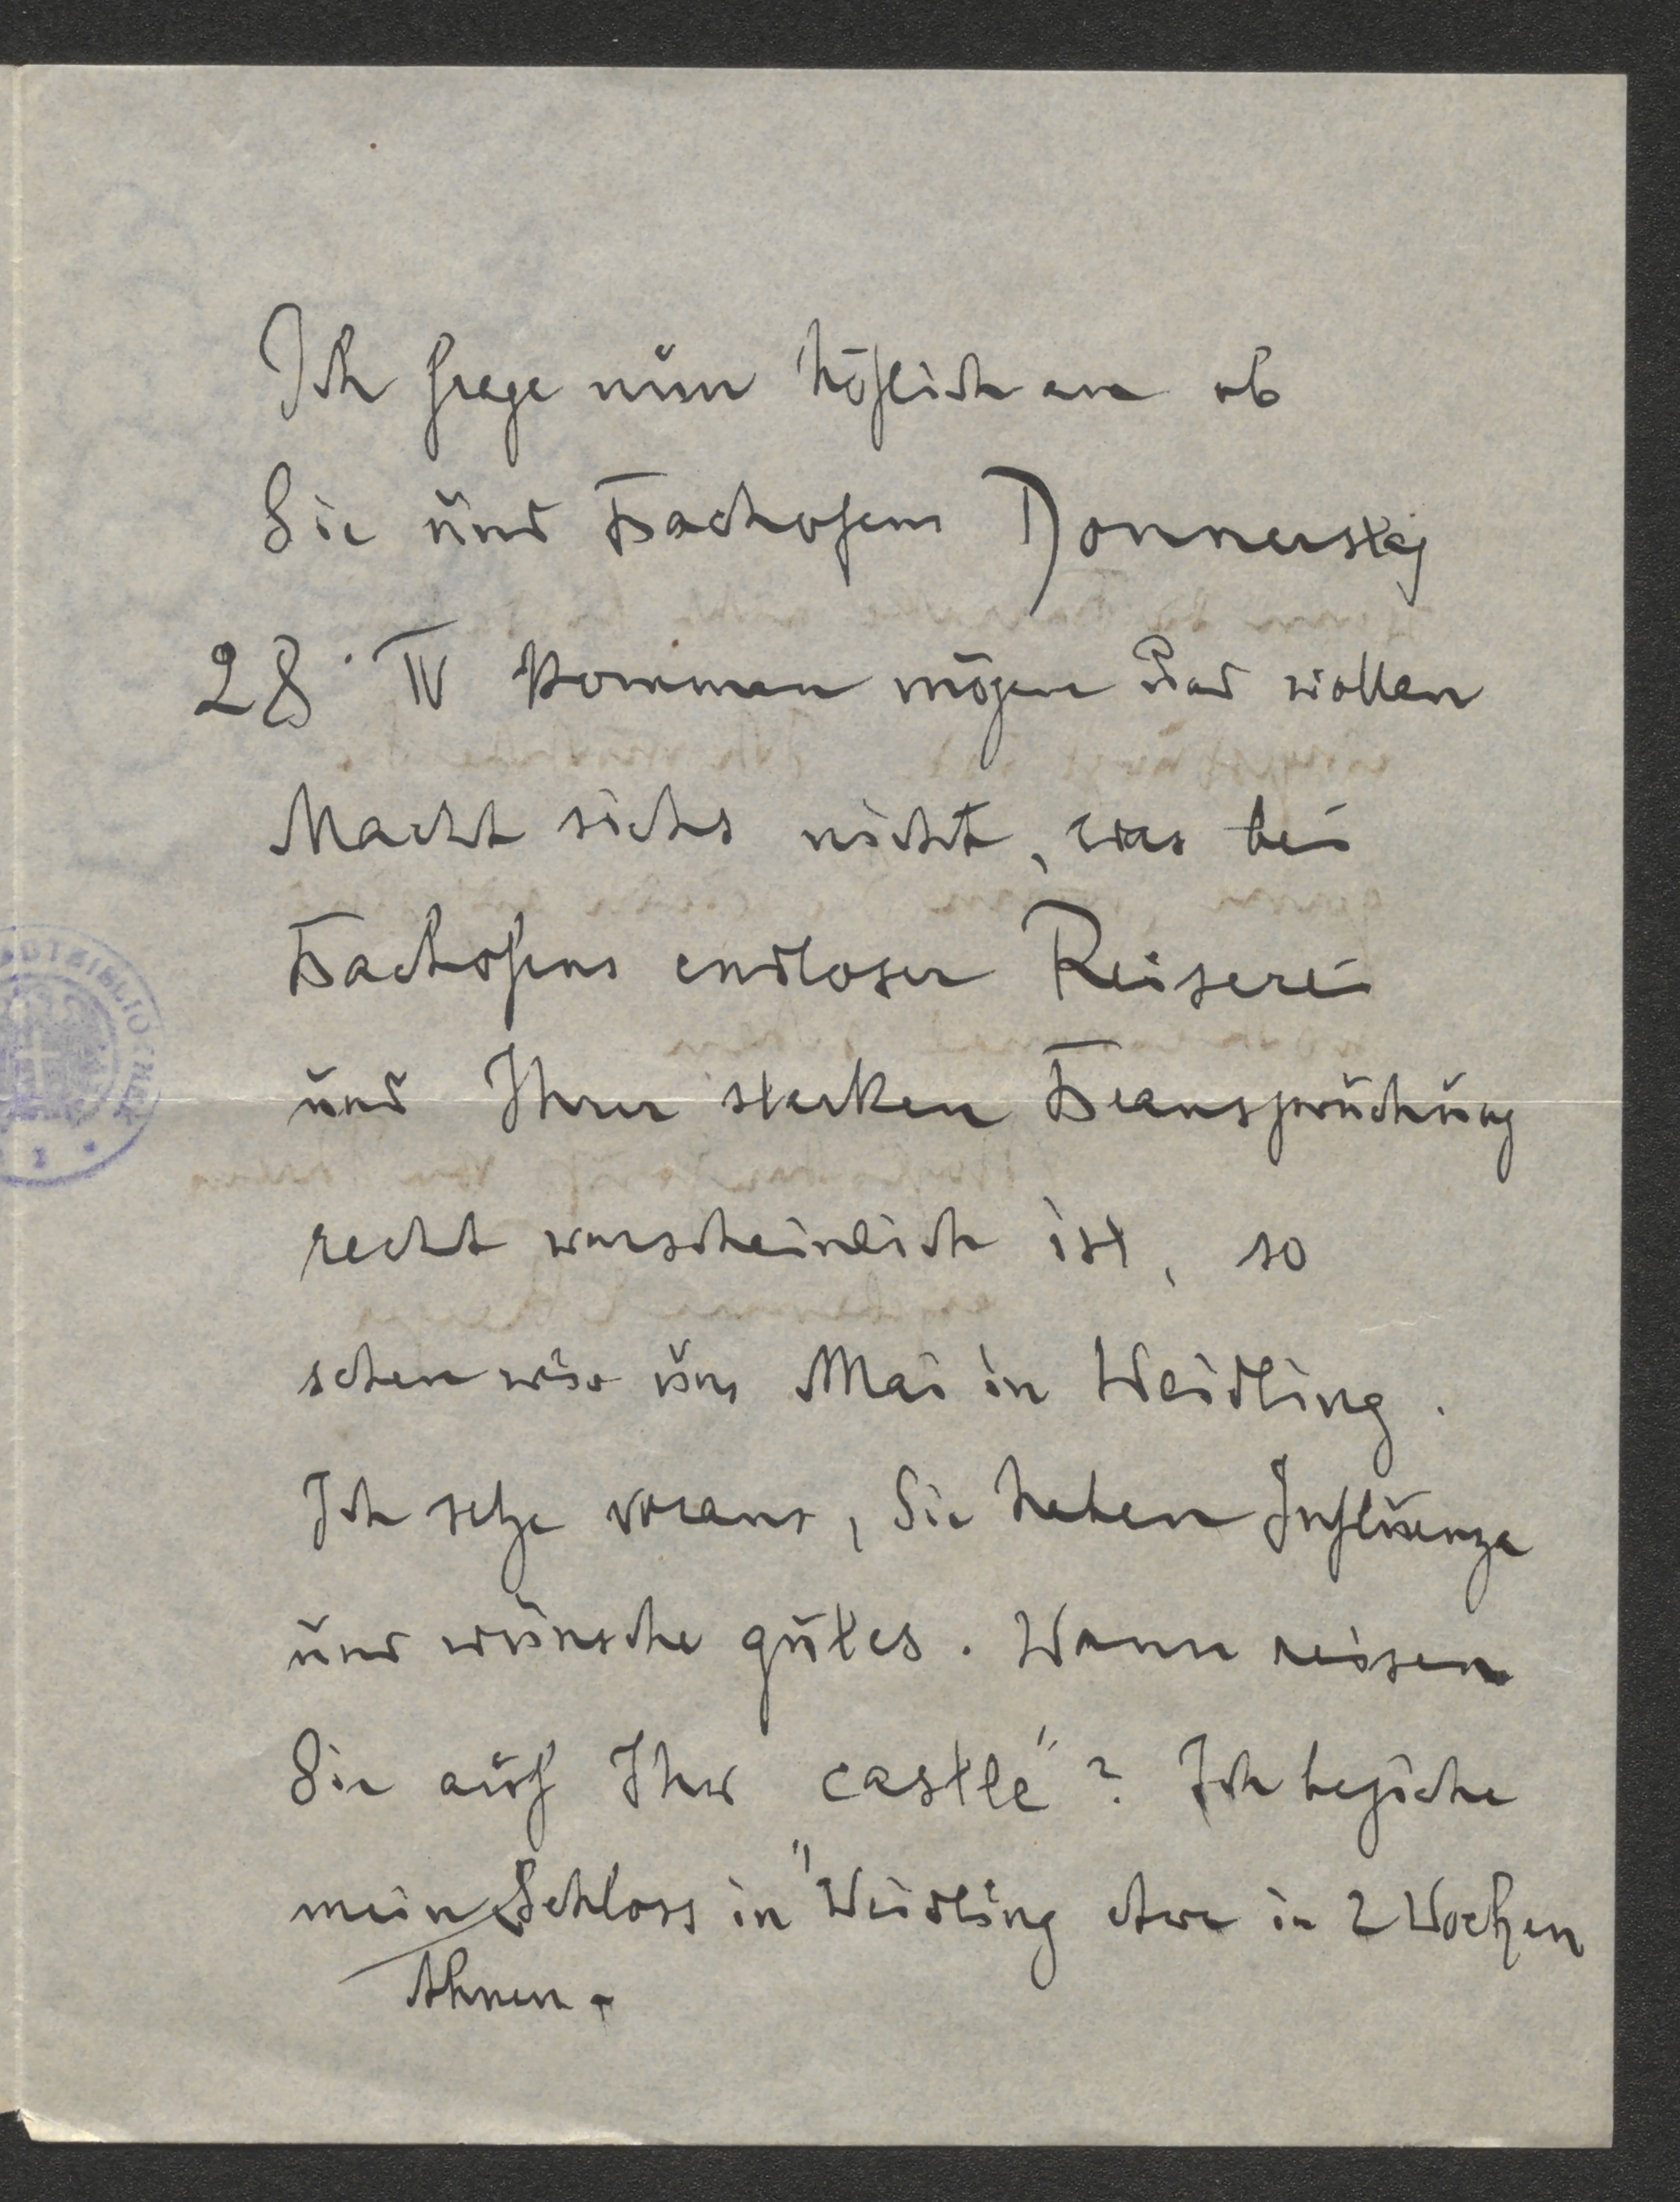 Ich frage nun höflich an ob
Sie und Bachofens Donnerstag
28. IV kommen mögen und wollen
Macht sichs nicht, was bei
Bachofens endloser Reiserei
und Ihrer starken Beanspruchung
recht warscheinlich ist, so
sehen wir uns Mai in Weidling.
Ich setze voraus, Sie haben Influenza
und wünsche gutes. Wann reisen
Sie auf Ihr castle"? Ich beziehe
mein Schloss in" Weidling etwa in 2 Wochen
Ihnen.